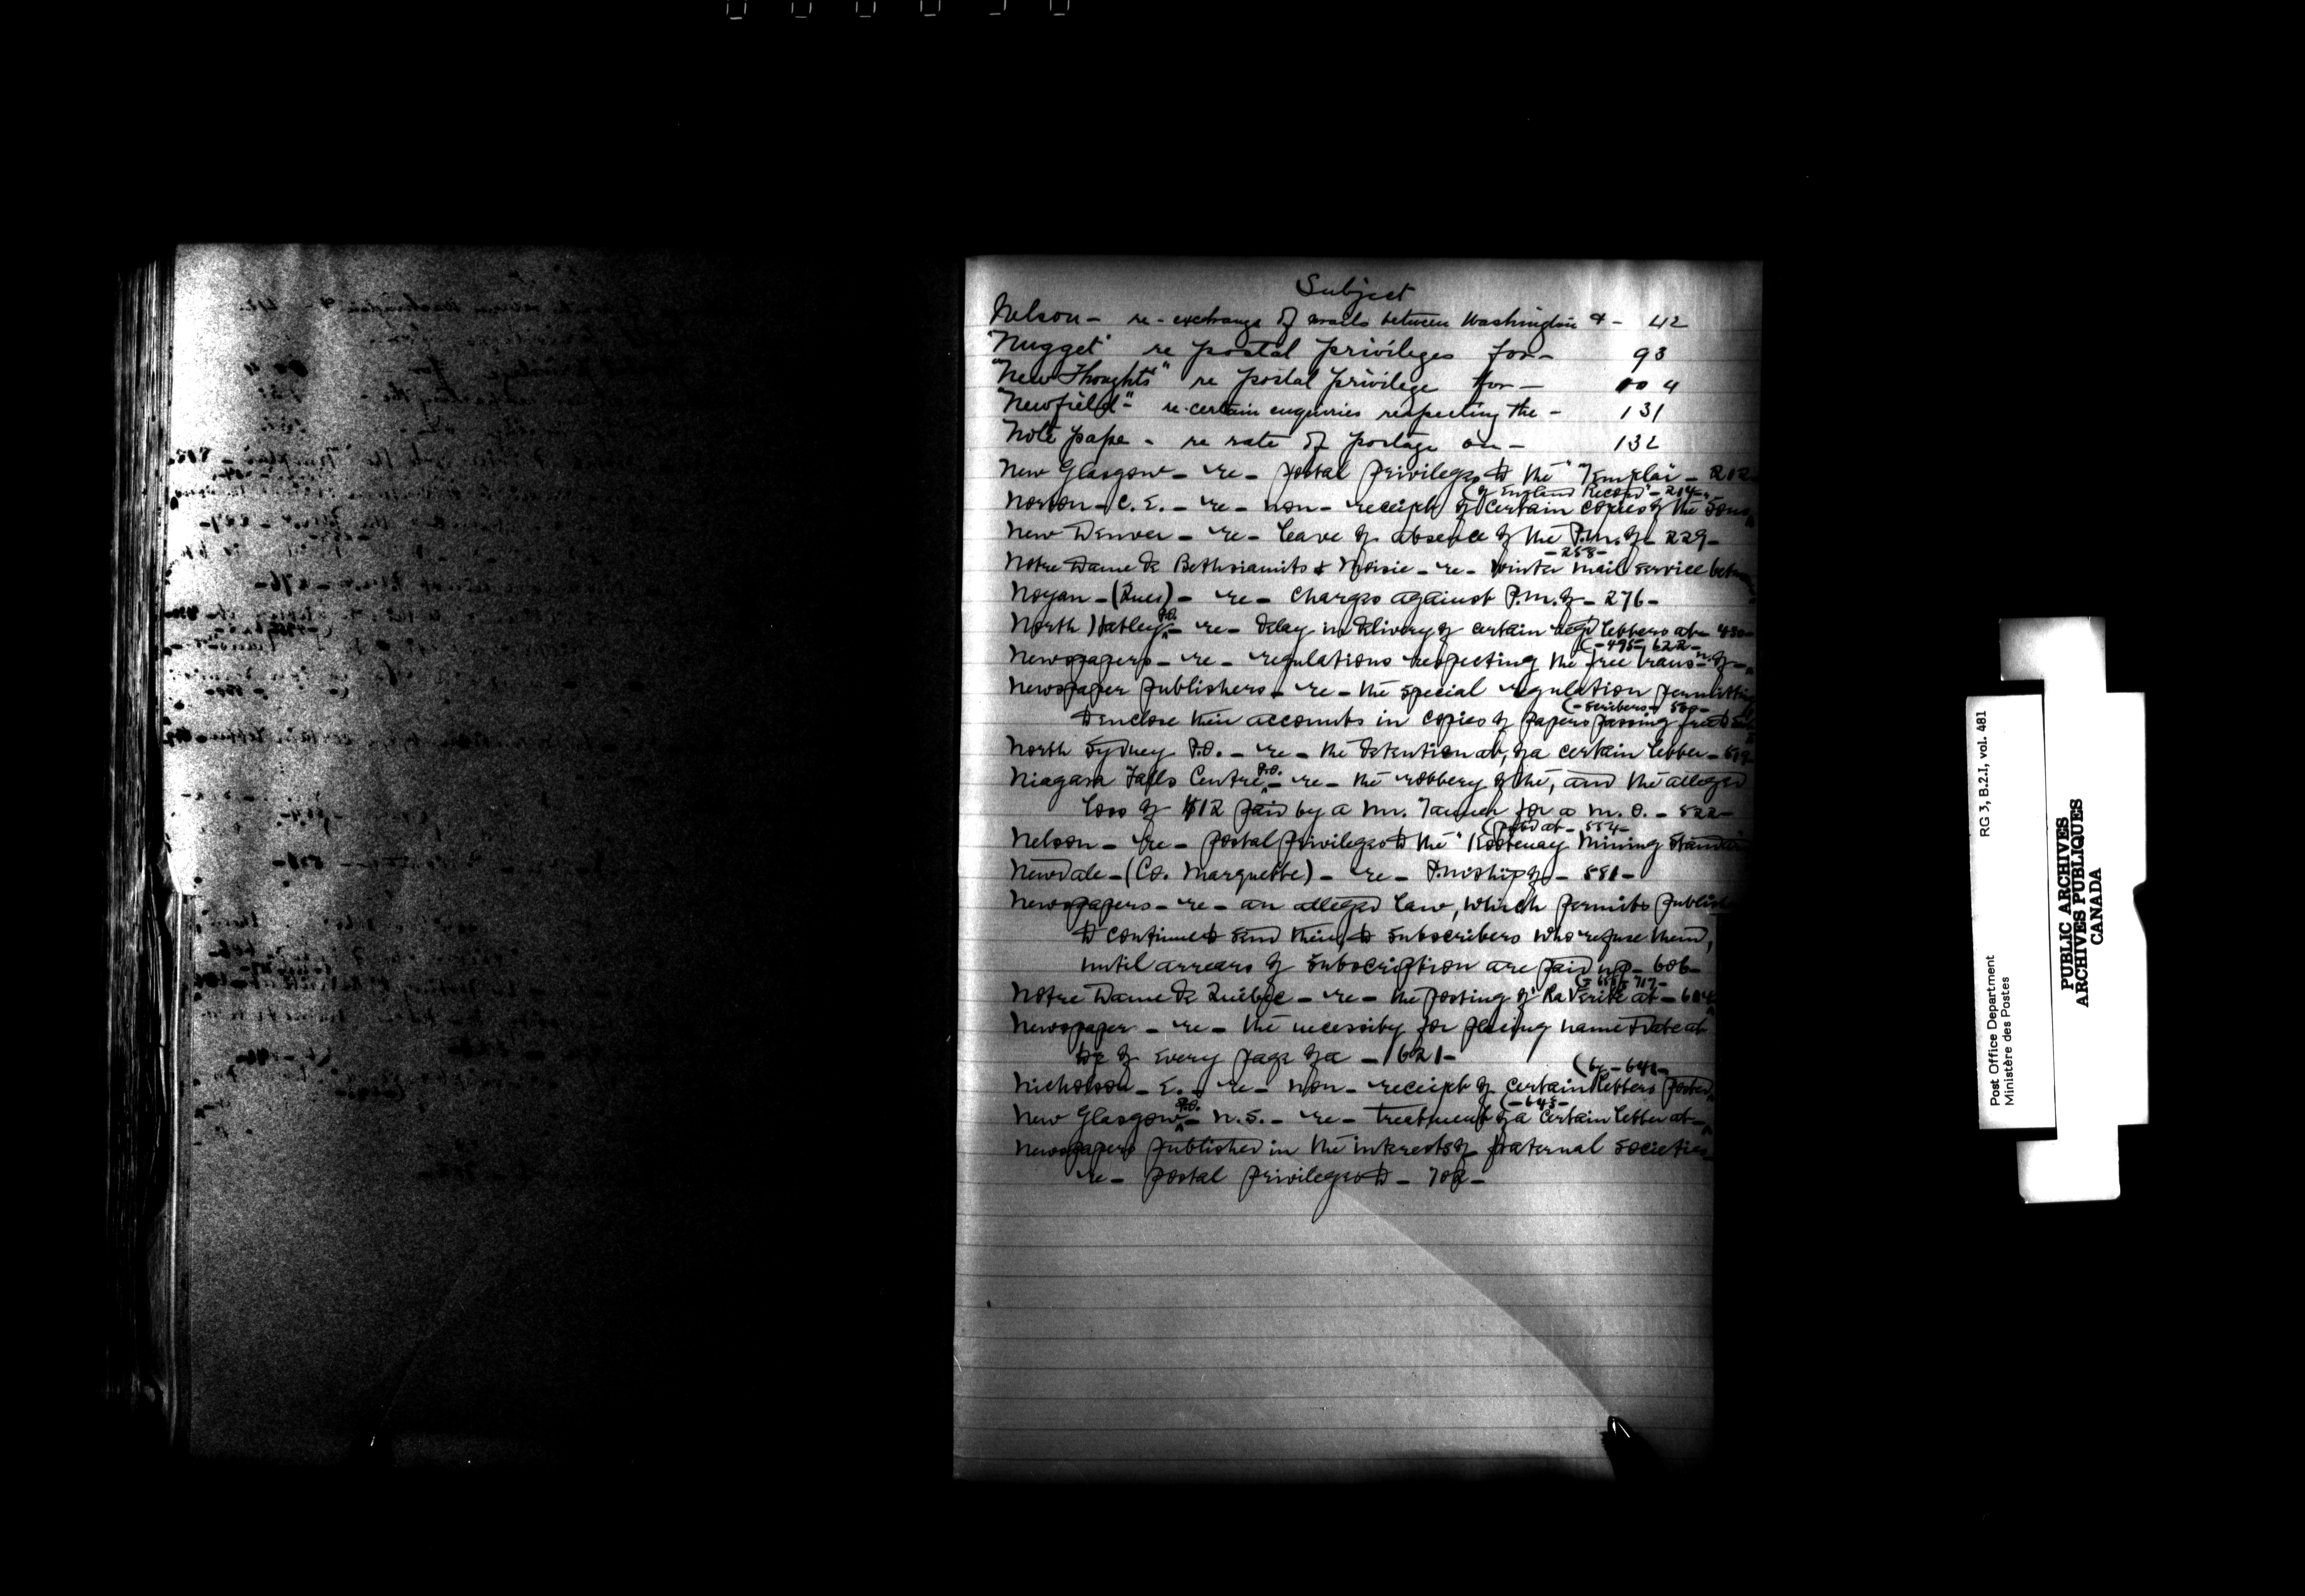 Subject
Nelson - re - exchange of mails between Washington & - 42
"Nugget" re postal privileges for - 93
"New Thoughts" re postal privilege for - 4
"Newfield" - re certain enquiries respecting the - 131
Note pape - re rate of postage on - 132
New Glasgow - re - postal privileges to the "Templar" - 212
(of England Record" - 214 -
Norton - C. E. - re - non - receipt of certain copies of the
New Denver - re - leave of absence of the P.M. of - 229 -
- 258 -
Notre Dame de Bethsiamits & Moisie - re - Winter mail service betw
Noyan - (Quec) - re - Charges against P.M. of - 276 -
North Hatley P.O. - re - delay in delivery of certain regd letters at -
(- 495 - 622 -
Newspapers - re - regulations respecting the free trans-n. of -
Newspaper publishers - re - the special regulation permitting
(- scribers -
to enclose their accounts in copies of papers passing free to sub
North Sydney P.O. - re - the detention at, of a certain letter - 519
Niagara Falls Centre P.O. - re - the robbery of the, and the alleged
loss of $12 paid by a Mr. for a M. O. - 522 -
(pubd at - 554 -
Nelson - re - postal privileges to the "Kootenay Mining Standard
Newdale - (Co. Marquette) - re - P.mship of - 581 -
Newspapers - re - an alleged law, which permits publish
to continue to send their, to subscribers who refuse them,
until arrears of subscription are paid up - 606 -
717 -
Notre Dame de Québec - re - the posting of "La Verité at -
Newspaper - re - the necessity for placing name & date at
top of every page of a - 621 -
(by - 641 -
Nicholson - E. - re - non - receipt of certain letters posted
(- 643 -
New Glasgow P.O. - N.S. - re - treatment of a certain letter at -
Newspapers published in the interests of fraternal societies
re - postal privileges to - 702 -
RG 3, B.2.1, vol. 481
Post Office Department
Ministère des Postes
PUBLIC ARCHIVES
ARCHIVES PUBLIQUES
CANADA